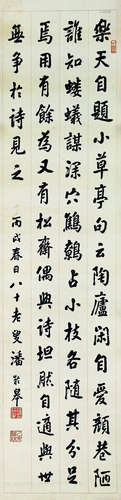 樂天自題小草亭句云陶廬閑自愛顏巷陋
誰知螻蟻謀深穴鷦鷯占小枝各隨其分足
焉用有餘為又有松齋偶興詩坦然自適與世
無爭於詩見之
丙戌春日八十老叟潘齡皋